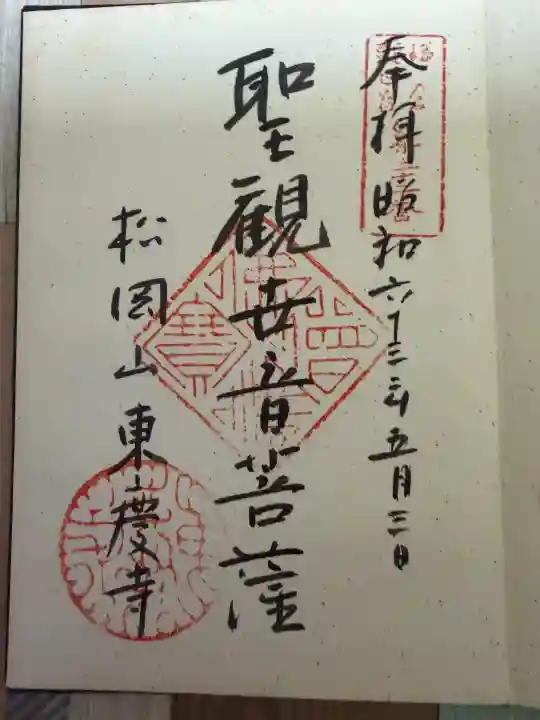 奉拝 昭和六十三年五月三日
聖觀世音菩薩
松岡山 東慶寺